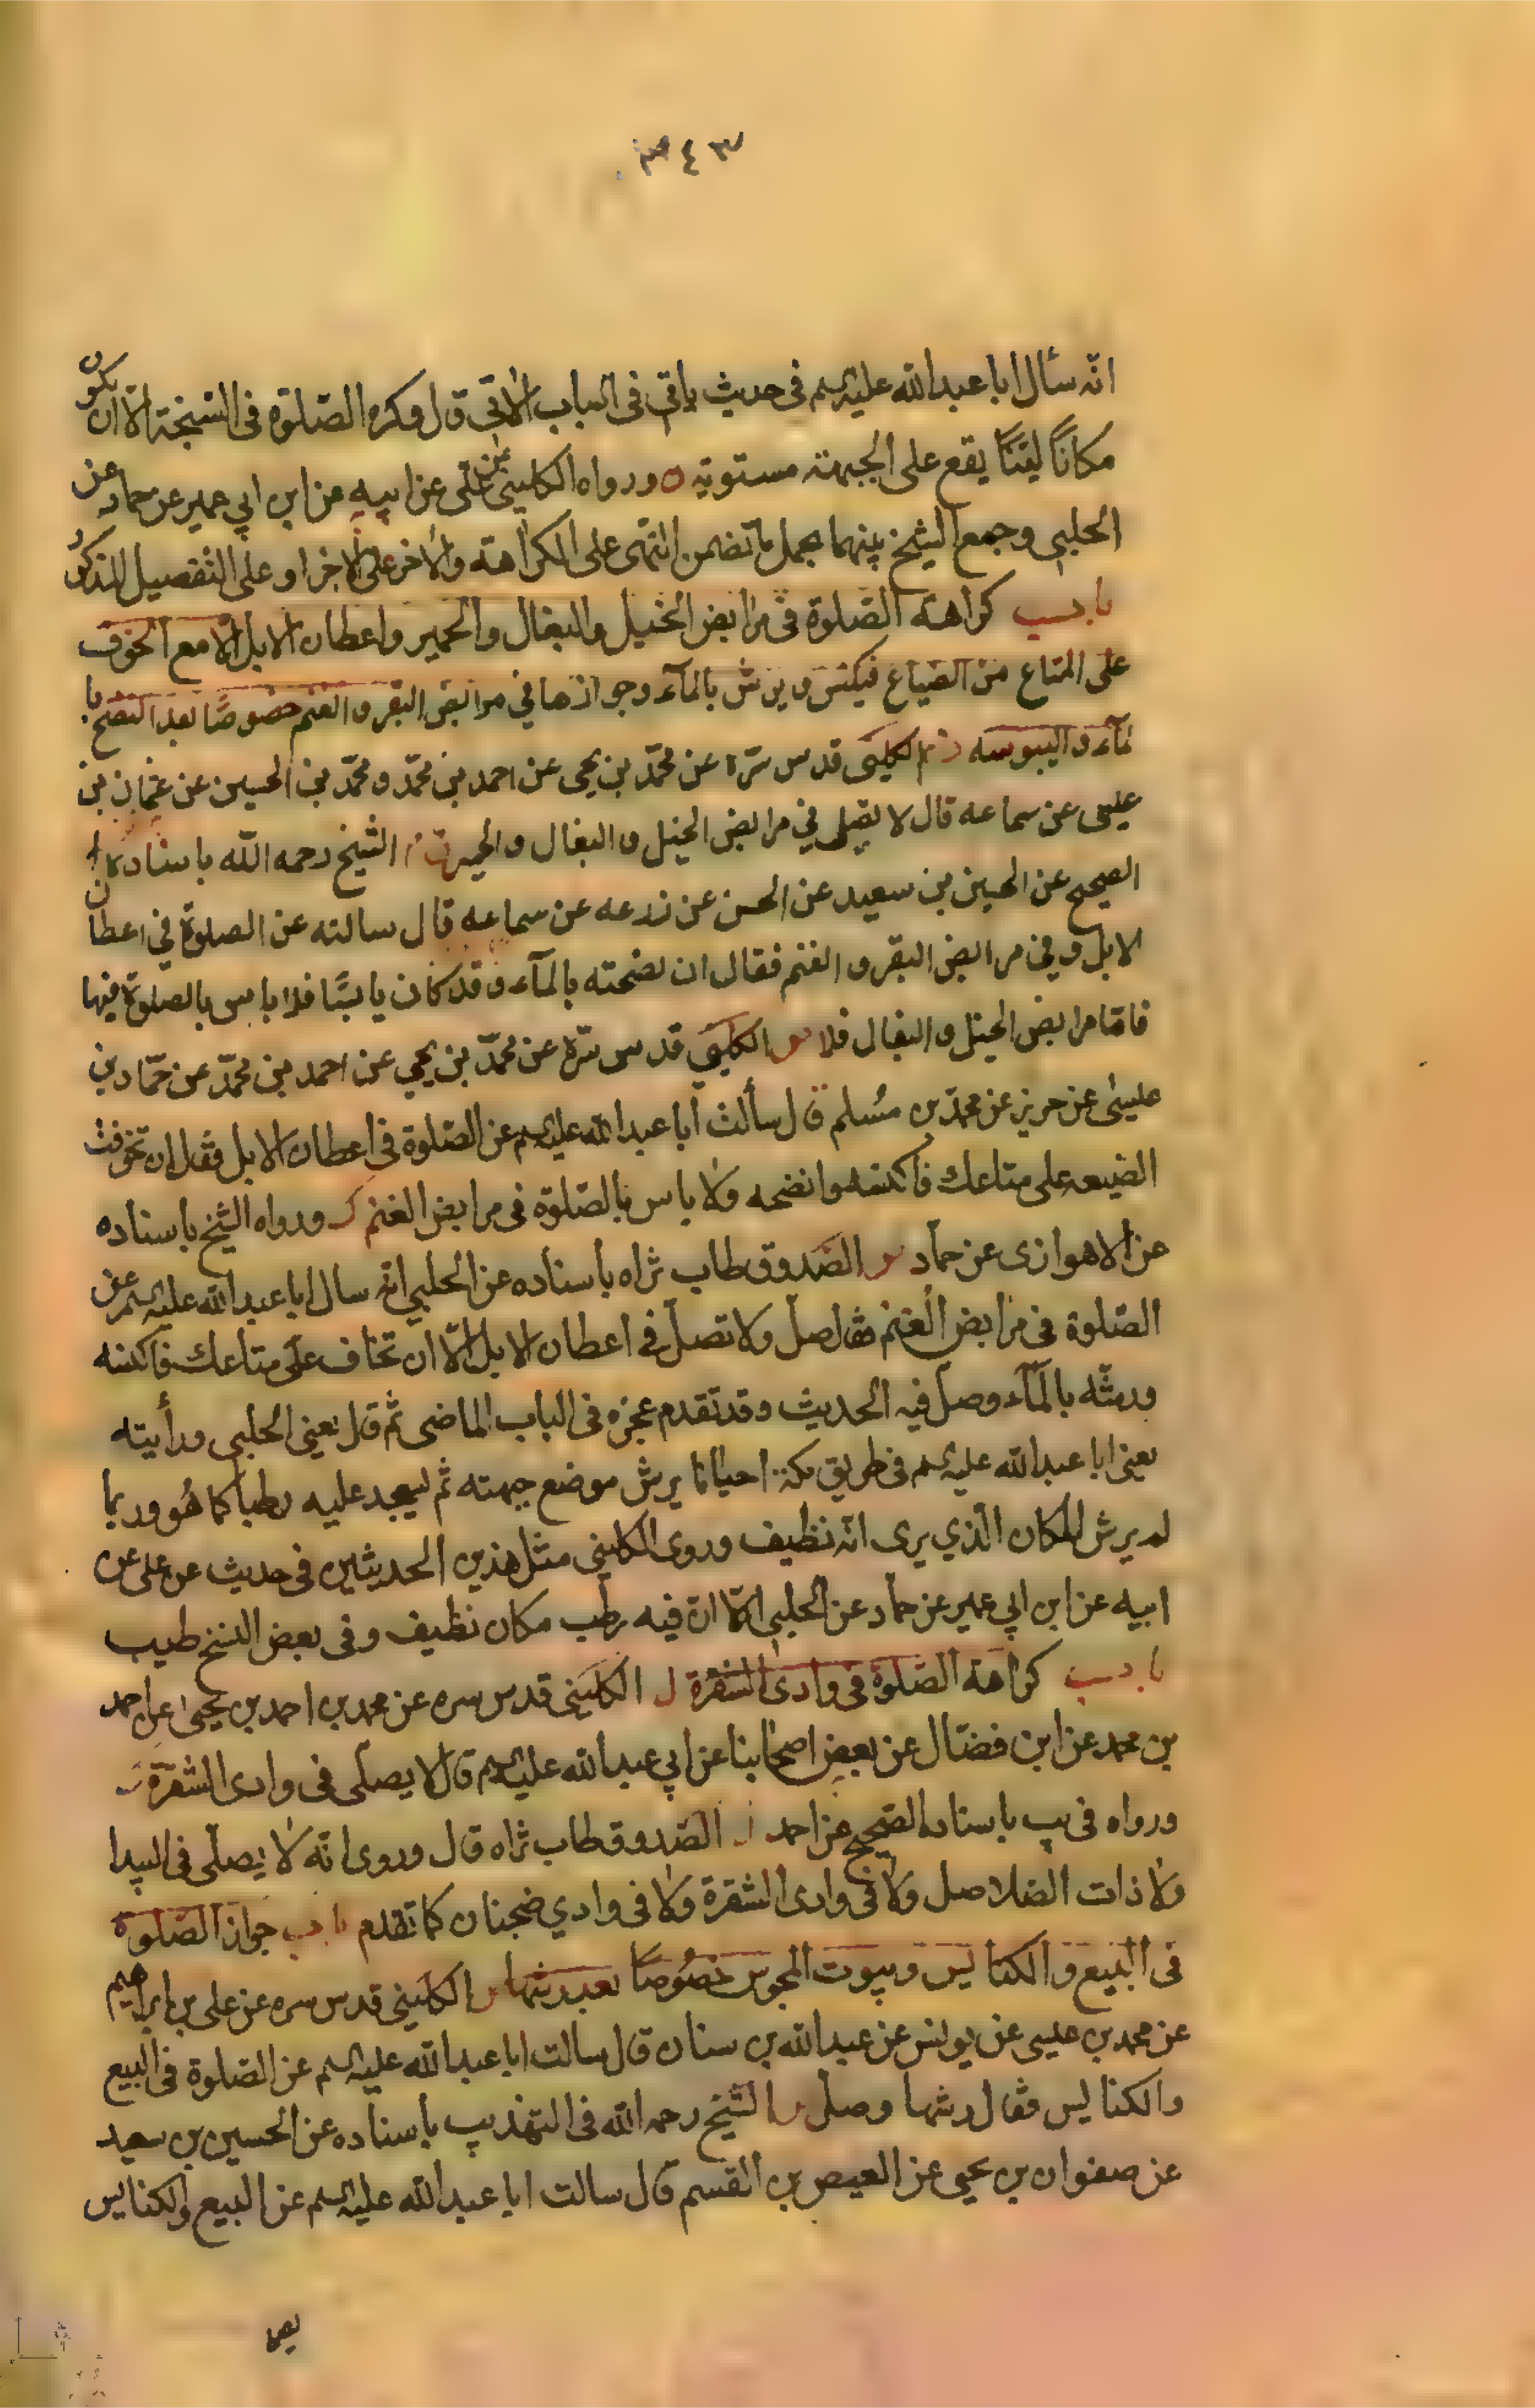 ٣٤٣
انّه سأل ابا عبدالله عليه السلم فى حديث ياتى فى الباب الآتى قال وكره الصّلوة فى السّبخة الّا ان يكون
مكانًا ليّنًا يقع على الجبهة مستوية ورواه الكلينى عن على عن ابيه عن ابن ابي عمير عن حماد عن
الحلبى وجمع الشيخ بينهما بحمل ما تضمن النّهى على الكراهة والاخر على الاخرا وعلى التفصيل المذكور
باب كراهة الصّلوة فى مرابض الخيل والبغال والحمير واعطان الابل الّا مع الخوف
على المتاع من الضياع فيكنس ويرش بالمآء وجوازها في مرابض البقر والغنم خصوصًا بعد النضح با
لمآء واليبوسه الكلينى قدس سرّه عن محمّد بن يحيى عن احمد بن محمّد ومحمّد بن الحسين عن عثمان بن
عيسى عن سماعه قال لا تصلى في مرابض الخيل والبغال والحمير الشيخ رحمه الله باسناده
الصحيح عن الحسين بن سعيد عن الحسن عن زرعه عن سماعه قال سالته عن الصلوة في اعطان
الابل وفي مرابض البقر والغنم فقال ان نضحته بالمآء وقد كان يابسًا فلا باس بالصلوة فيها
فامّا مرابض الخيل والبغال فلا الكلينى قدس سرّه عن محمّد بن يحيى عن احمد بن محمّد عن حمّاد بن
عيسىٰ عن حريز عن محمد بن مُسلم قال سألت ابا عبدالله عليه السلم عن الصّلوة فى اعطان الابل فقال ان تخوفت
الضيعه على متاعك فاكنسه وانضحه ولا باس بالصّلوة فى مرابض الغنم ورواه الشيخ باسناده
عن الاهوازى عن حمّاد الصّدوق طاب ثراه باسناده عن الحلبي انّه سال ابا عبدالله عليه السلم عن
الصّلوة فى مرابض الغنم فقال صلّ ولا تصلّ فى اعطان الابل الّا ان تخاف على متاعك فاكنسه
ورشّه بالمآء وصلّ فيه الحديث وقد تقدم عجزه فى الباب الماضى ثم قال يعنى الحلبى ورأيته
يعنى ابا عبدالله عليه السلم فى طريق مكة احيانا يرش موضع جبهته ثم يسجد عليه رطبا كما هُو وربما
لم يرش المكان الّذي يرى انّه نظيف وروى الكلينى مثل هذين الحديثين فى حديث عن على عن
ابيه عن ابن ابي عمير عن حماد عن الحلبى الّا انّ فيه رطب مكان نظيف وفى بعض النسخ طيب
باب كراهة الصّلوة فى وادى الشقرة الكلينى قدس سره عن محمد بن احمد بن يحيىٰ عن احمد
بن محمد عن ابن فضّال عن بعض اصحابنا عن ابي عبدالله عليه السلم قال لا يصلّى فى وادى الشقرة
ورواه فى يب باسناده الصّحيح عن احمد الصّدوق طاب ثراه قال وروى انّه لا يصلّى فى البيدا
ولا ذات الصّلاصل ولا فى وادى الشقرة ولا فى وادي ضجنان كما تقدم باب جواز الصّلوة
فى البيع والكنايس وبيوت المجوس خصُوصًا بعد رشها الكلينى قدس سره عن على بن ابراهيم
عن محمد بن عيسى عن يونس عن عبدالله بن سنان قال سالت ابا عبدالله عليه السلم عن الصّلوة فى البيع
والكنايس فقال رشها وصلّ الشيخ رحمه الله فى التهذيب باسناده عن الحسين بن سعيد
عن صفوان بن يحيى عن العيص بن القسم قال سالت ابا عبدالله عليه السلم عن البيع والكنايس